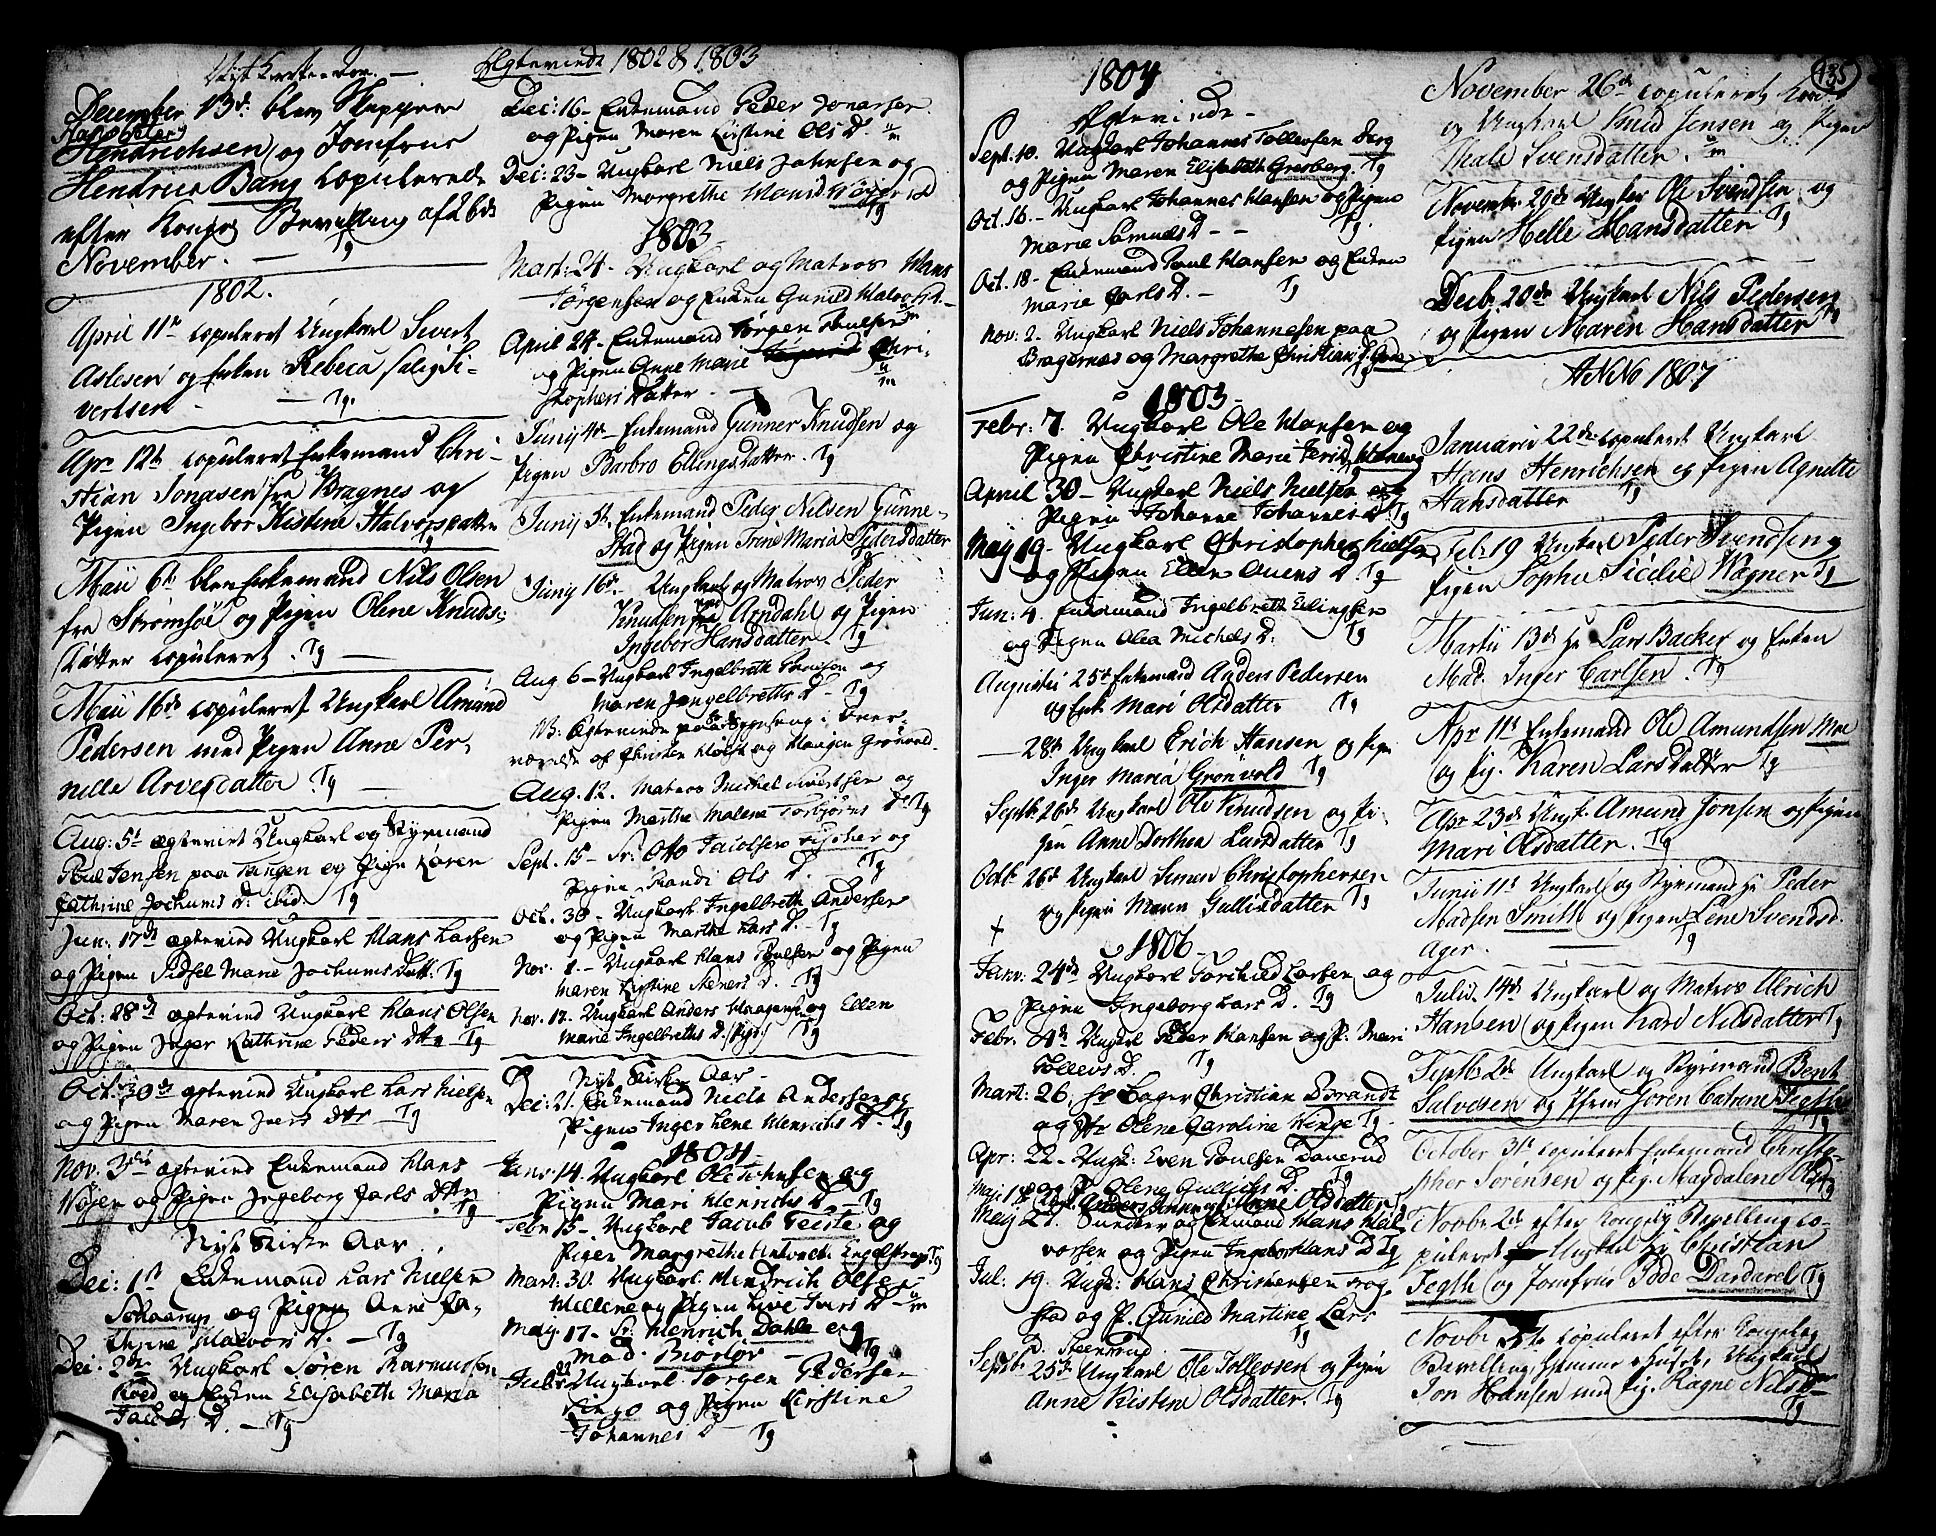 Nyt Kirke Aar. —
December 13d. blev Skipper
Hans Peter
Hendrichsen og Jomfrue
Hendrica Bang copulerede
efter Kongel. Bevelling af 26de
November. — Tg
1802.
April 11te copuleret Ungkarl Sivert
Aslesen og Enken Rebeca salig Si-
vertsen — Tg.
Apr. 12te copuleret Enkemand Chri-
stian Jonasen fra Bragnes og
Pigen Ingebor Kistine Halvorsdatter
Tg
Maii 6te blev Enkemand Nils Olsen
fra Strømsøe og Pigen Olene Knuds-
Datter copuleret. Tg —
Maii 16de copuleret Ungkarl Amund
Pedersen med Pigen Anne Per-
nille Arvesdatter Tg —
Aug: 5t ægteviet Ungkarl og Styrmand
Poul Jensen paa Tangen og Pigen Karen
Cathrine Jochums D. ibid. Tg
Jun: 17de ægtevied Ungkarl Hans Larsen
og Pigen Sidsel Marie Jochums Datt. Tg
Oct: 28de ægtevied Ungkarl Hans Olsen
og Pigen Inger Kathrine Peders Dtr Tg
Oct: 30de ægtevied Ungkarl Lars Nielsen
og Pigen Maren Ivers Dtr Tg
Nov. 3die ægtevied Enkemand Hans
og Pigen Ingeborg Carls Dtr
Tg
Nyt Kirke Aar
Dec: 1st Enkemand Lars Nielsen
og Pigen Anne Ca-
thrine Halvors D. — Tg
Dec: 2de Ungkarl Søren Rasmussen
Koed og Enken Elisabeth Maria
Jacobs D. — Tg
Ægteviede 1802 & 1803
Dec: 16— Enkemand Peder Jonassen
og Pigen Maren Kirstine Ols D.
Dec: 23— Ungkarl Niels Johnsen og
Pigen Margrethe
Tg
1803—
Mart: 24— Ungkarl og Matros Hans
Jørgensen og Enken Gunild Halvors D.—
April 24— Enkemand Jørgen Poulsen
og Pigen Anne Marie Chri-
stophers Datter —
Junij 4de— Enkemand Gunner Knudsen og
Pigen Barbro Ellings Datter. Tg
Junij 5te Enkemand Peder Nilsen Gunne-
stad og Pigen Trine Maria Pedersdatter
Junij 16de— Ungkarl og Matros Peder
Knudsen fra Arndahl og Pigen
Ingebor Hansdatter— Tg
Aug 6— Ungkarl Ingelbreth Poulsen og
Maren Ingelbreths D— Tg
NB: Ægteviede paa i Over-
værelse af Christen Holst og Haagen Grønvold—
Aug. 12. Matros Michel Sivertsen og
Pigen Marthe Malene Torbjørns D. Tg
Sept. 15— Sr. Otto Jacobsen Fischer og
Pigen Randi Ols D. — Tg
Oct. 30— Ungkarl Ingelbreth Andersen
og Pigen Marthe Lars D.— Tg
Nov. 1.— Ungkarl Hans Poulsen og Pigen
Maren Kirstine Steners D. Tg
Nov. 17. Ungkarl Anders Haagensen og Ellen
Marie Ingelbreths D. (Pige) Tg
Nyt Kirke Aar—
Dec: 21. Enkemand Niels Andersen og
Pigen Inger Lene Henrichs D. Tg
1804—
Janv: 14. Ungkarl Ole Johnsen og
Pigen Mari Henrichs D Tg
Febr: 15— Ungkarl Jacob Teiste og
Pigen Margrethe Engelstrup Tg
Mart: 30. Ungkarl Hendrich Olsen
Millene og Pigen Live Ivers D—
May. 17— Sr. Henrich Dahle og Tg
Mad. Biørløv —
Jul: 22 Ungkarl Jørgen Pedersen
Lingo og Pigen Kirstine
Johannes D— Tg
1804
Ægteviede—
Sept. 10. Ungkarl Johannes Tollevsen Berg
og Pigen Maren Elisabeth Gresberg. Tg
Oct. 16.— Ungkarl Johannes Hansen og Pigen
Marie Samuels D— — Tg.
Oct. 18— Enkemand Poul Hansen og Enken
Marie Carls D.— Tg
Nov: 2— Ungkarl Niels Johannesen paa
Bragernæs og Margrethe Christian D.
Tg
1803—
Febr: 7. Ungkarl Ole Hansen og
Pigen Christine Marie
April 30— Ungkarl Niels Nielsen og
Pigen Johanne Johannes D Tg
May 19— Ungkarl Christopher Nielsen
og Pigen Ellen Ouens D. Tg
Jun: 4. Enkemand Ingelbreth Ellingsen
og Pigen Olea Michels D. Tg
Augusti 25t Enkemand Anders Pedersen
og Enk. Mari Olsdatter Tg
— 28de Ungkarl Erich Hansen og Pigen
Inger Maria Grønvold Tg
Septb. 26de Ungkarl Ole Knudsen og Pi-
gen Anne Dorthea Larsdatter Tg
Octb. 26de Ungkarl Simen Christophersen
og Pigen Maren Gullisdatter Tg
+
1806—
Janv: 24de Ungkarl Torchild Larsen og
Pigen Ingeborg Lars D. Tg
Febr. 4de Ungkarl Peder Hansen og P. Mari
Tollevs D. Tg
Mart: 26. Hr Bager Christian Brandt
og Jfr Olene Caroline Winge Tg—
Apr: 22— Ungk: Even Poulsen
og P. Olene Gullichs D. Tg
Maji 18 Anne Olsdatter
Maij 21. og Enkemand Hans Hal-
vorsen og Pigen Ingebor Hans D Tg
Jul: 19. Ungk: Hans Christensen
stad og P. Gunild Martine Lars
D. Steensrud. Tg
Septb: 25de Ungkarl Ole Tollevsen og Pigen
Anne Kistine Olsdatter. Tg
135
November 26de copuleret
og Ungkarl Knud Jensen og Pigen
Thale Svensdatter.
November 29de Ungkar Ole Svendsen og
Pigen Helle Hansdatter Tg
Decb: 20de Ungkarl Nils Pedersen
og Pigen Maren Hansdatter Tg
ANNO 1807
Januarii 22de copuleret Ungkarl
Hans Henrichsen og Pigen Agnette
Hansdatter Tg
Feb: 19 Ungkarl Peder Svendsen og
Pigen Sophie Sicilie Wagner Tg
Martii 13de Hr Lars Backer og Enken
Mad. Inger Carlsen. Tg
Apr 11te Enkemand Ole Amundsen Moe
og Pig. Karen Lars Datter Tg
Apr 23de Ungk. Amund Jonsen og Pigen
Mari Olsdatter. Tg
Junii 11te Ungkarl og Styrmand Hr Peder
Madsen Smith og Pigen Lene Svendsd.
Ager. — Tg
Julii. 14de Ungkarl og Matros Ulrich
Hansen og Pigen Kari Nilsdatter Tg
Septb. 2de Ungkarl og Styrmand Bent
Salvesen og Pigen Joren Catrine
Tg
October 31te copuleret Enkemand Christo-
pher Sørensen og Pig. Magdalene Olsd.
Tg
Novbr 2de efter Kongelig Bevelling co-
puleret Ungkarl Hr Christian
Tegth og Jomfrue Bode Dardarel Tg
Novbr copuleret efter Kongelig
Bevelling hjemme i Huset, Ungkarl
Jon Hansen med Pig. Ragne Nils D—
Tg